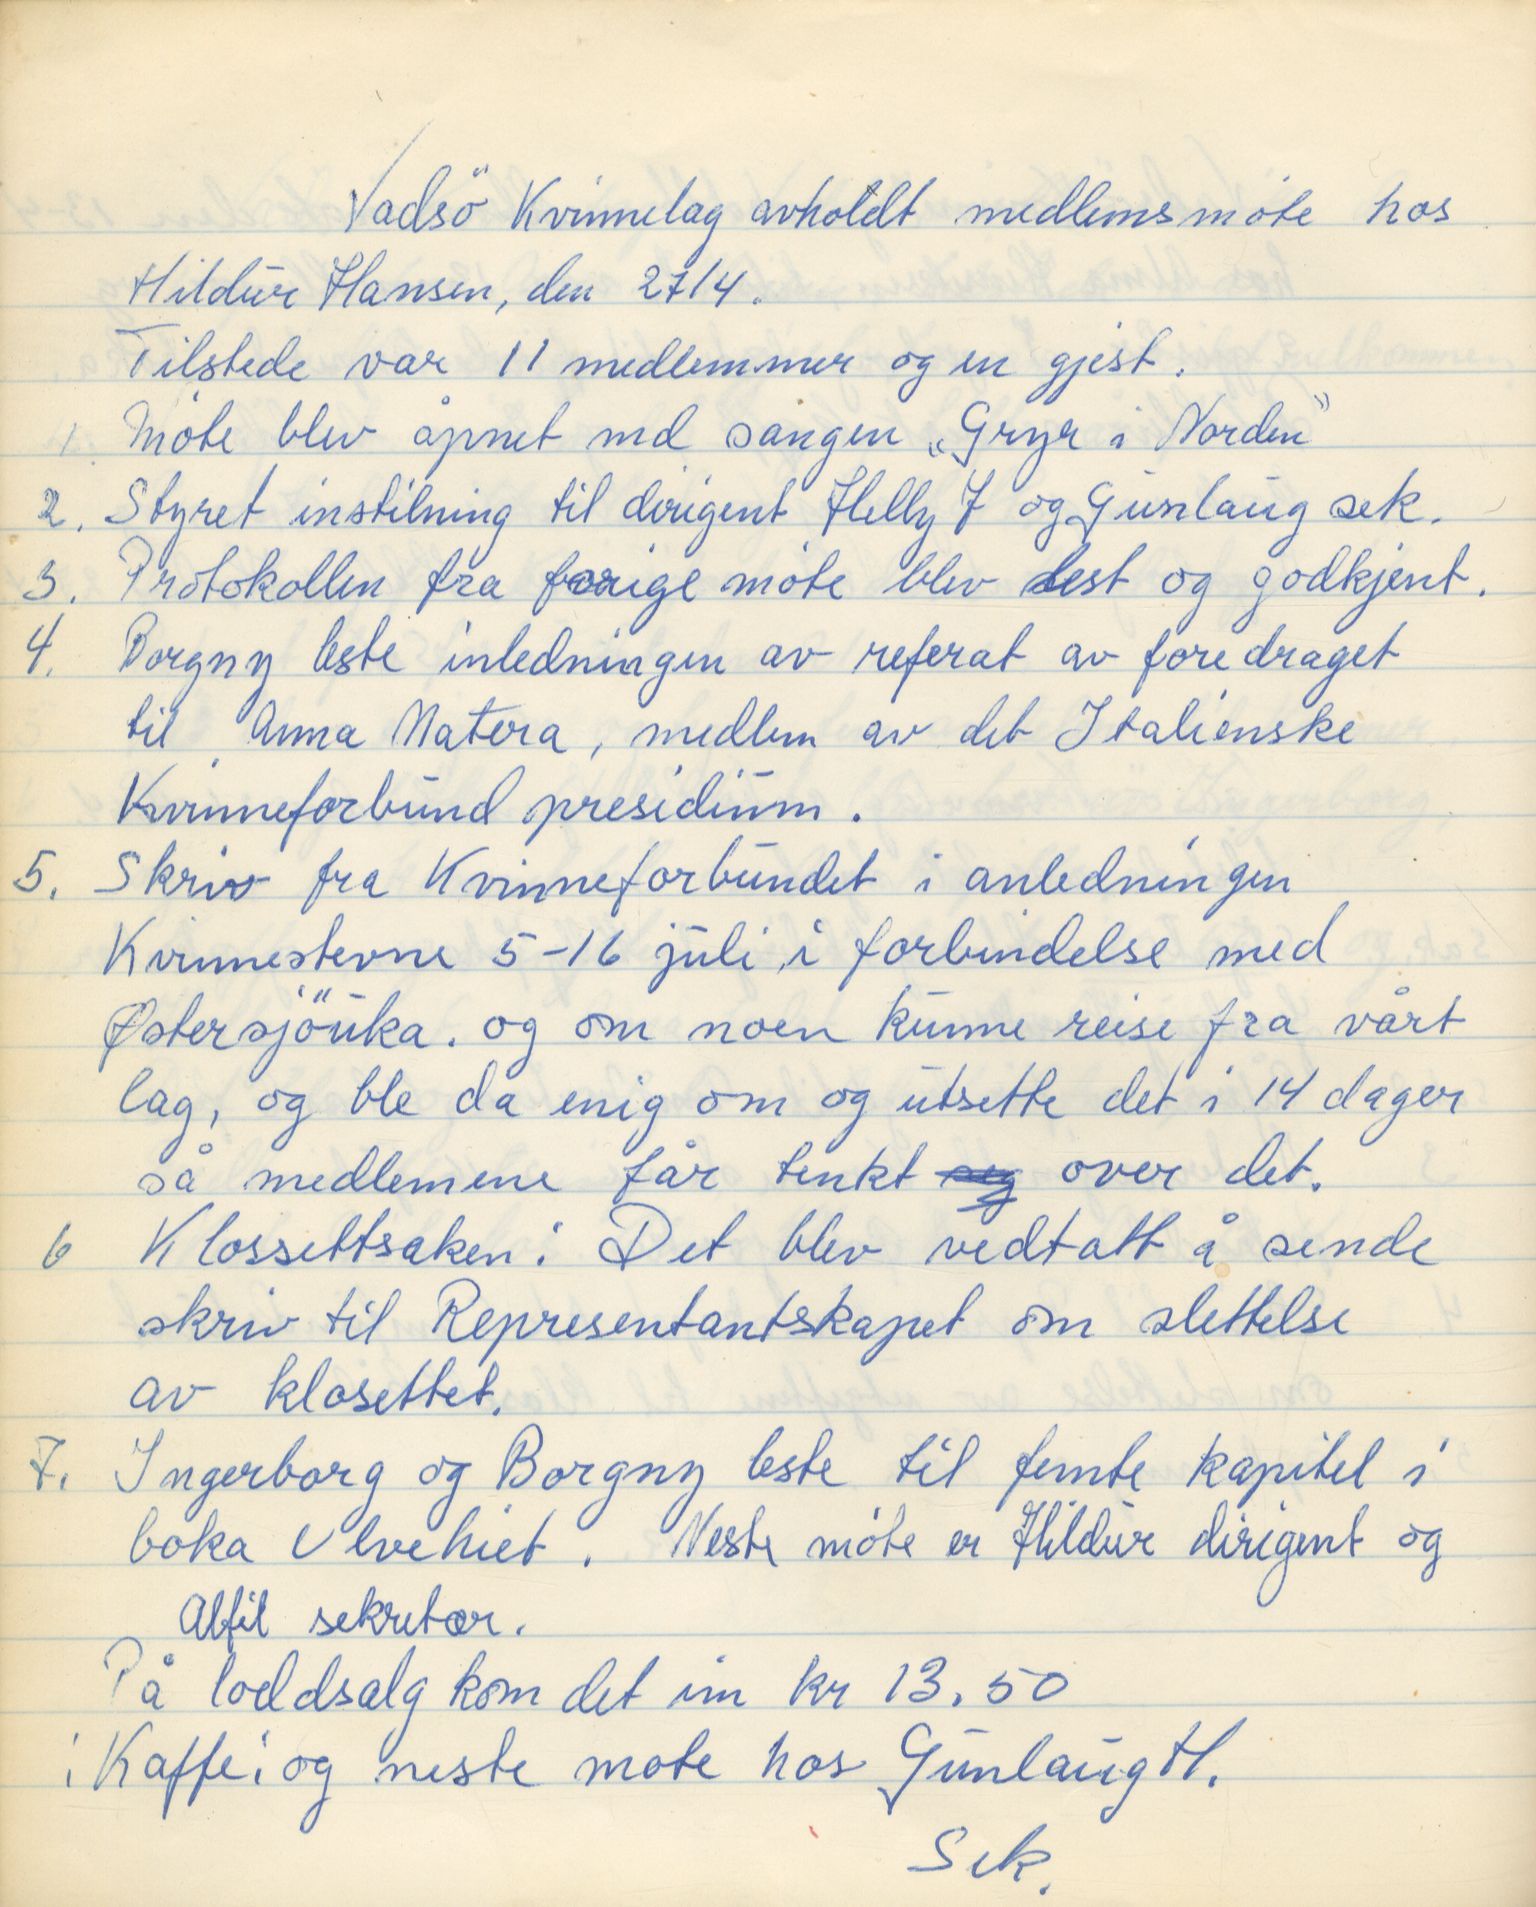 Vadsö Kvinnelag avholdt medlemsmöte hos
Hildur Hansen, den 27/4.
Tilstede var 11 medlemmer og en gjest.
1. Möte blev åpnet med sangen „Gryr i Norden"
2. Styret instilning til dirigent Helly J og Gunlaug sek.
3. Protokollen fra forige möte blev lest og godkjent.
4. Borgny leste inledningen av referat av foredraget
til Anna Matera, medlem av det Italienske
Kvinneforbund presidium.
5. Skriv fra Kvinneforbundet i anledningen
Kvinnestevne 5-16 juli, i forbindelse med
Østersjöuka. og om noen kunne reise fra vårt
lag, og ble da enig om og utsette det i 14 dager
så medlemene får tenkt seg over det.
6 Klossettsaken: Det blev vedtatt å sende
skriv til Representantskapet om slettelse
av klosettet.
7. Ingerborg og Borgny leste til femte kapitel i
boka Ulvehiet. Neste möte er Hildur dirigent og
Alfil sekretær.
På loddsalg kom det inn kr 13.50
: Kaffe: og neste mote hos Gunlaug H.
Sek.